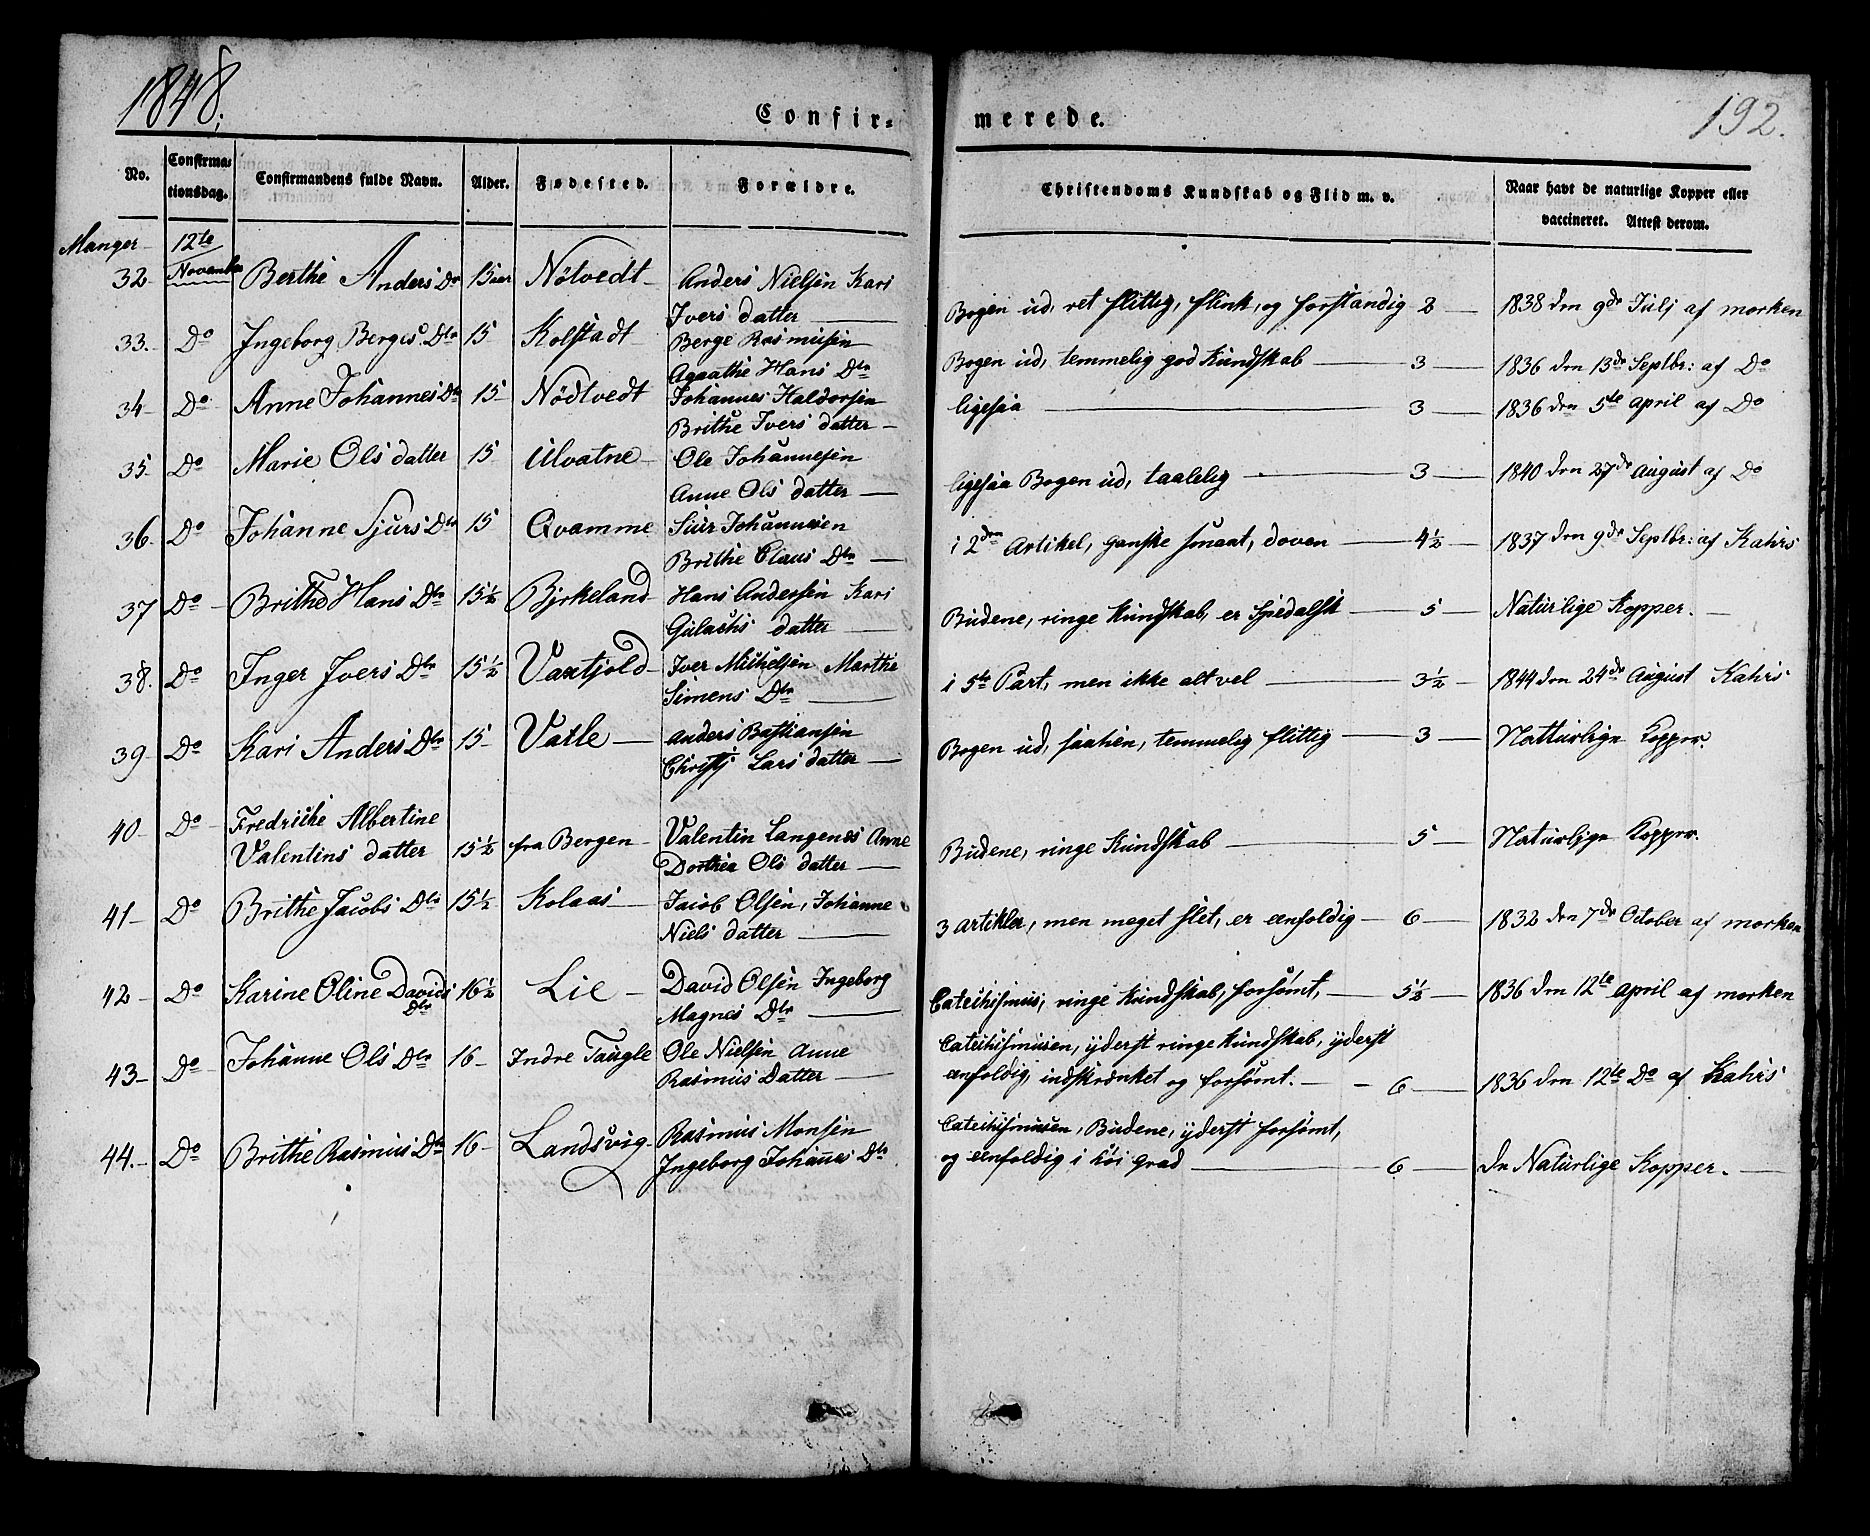 1848;
Confir=
merede.
192.
No.
Confirma=
tionsdag.
Confirmandens fulde Navn.
Alder.
Fødested.
Forældre.
Christendoms Kundskab og Flid m. v.
Naar havt de naturlige Kopper eller
vaccineret. Attest derom.
Manger
12te
32 November Berthe Anders Dr 15 aar Nötvedt Anders Nielsen Kari
Ivers datter
Bogen ud, ret flittig, flink, og forstandig 2 1838 den 9de Julj af morken
33. Do Ingeborg Berges Dtr 15 Kolstadt Berge Rasmusen
Agaathe Hans Dtr
Bogen ud, temmelig god Kundskab 3 1836 den 13de Septbr: af Do
34 Do Anne Johannes Dtr 15 Nödtvedt Johannes Haldorsen
Brithe Ivers datter
ligesaa 3 1836 den 5te April af Do
35 Do Marie Ols datter 15 Ulvatne Ole Johannesen
Anne Ols datter
ligesaa Bogen ud, taalelig 3 1840 den 27de August af Do
36 Do Johanne Sjurs Dtr 15 Qvamme Siur Johannesen
Brithe Claus Dtr
i 2den Artikel, ganske smaat, doven 4½ 1837 den 9de Septbr: af Kahrs
37 Do Brithe Hans Dtr 15½ Bjrkeland Hans Andersen Kari
Gulachs datter
Budene, ringe Kundskab, er Spedalsk 5 Naturlige Kopper.
38. Do Inger Ivers Dtr 15½ Vaxtjold Iver Michelsen Marthe
Simens Dtr
i 5te Part, men ikke alt vel 3½ 1844 den 24de August Kahrs
39 Do Kari Anders Dtr 15 Vatle Anders Bastiansen
Christj Lars datter
Bogen ud, saahen, temmelig flittig 3 Natturlige Kopper.
40 Do Fredriche Albertine
Valentins datter 15½ fra Bergen Valentin Langenes Anne
Dorthea Ols datter
Budene, ringe Kundskab 5 Naturlige Kopper.
41 Do Brithe Jacobs Dtr 15½ Kolaas Jacob Olsen, Johanne
Niels datter
3 Artikler, men meget slet, er eenfoldig 6 1832 den 7de October af morken
42 Do Karine Oline Davids
Dtr 16½ Lie David Olsen Ingeborg
Magnes Dtr
Catechismus, ringe Kundskab, forsömt, 5½ 1836 den 12te April af morken
43 Do Johanne Ols Dtr 16 Indre Taugle Ole Nielsen Anne
Rasmus Datter
Catechismusen, yderst ringe Kundskab, yderst
eenfoldig, indskrænket og forsömt. 6 1836 den 12te Do af Kahrs
44. Do Brithe Rasmus Dtr 16 Landsvig Rasmus Monsen
Ingeborg Johannes Dtr
Catechismusen, Budene, yderst forsömt,
og eenfoldig i höi Grad 6 de Naturlige Kopper.